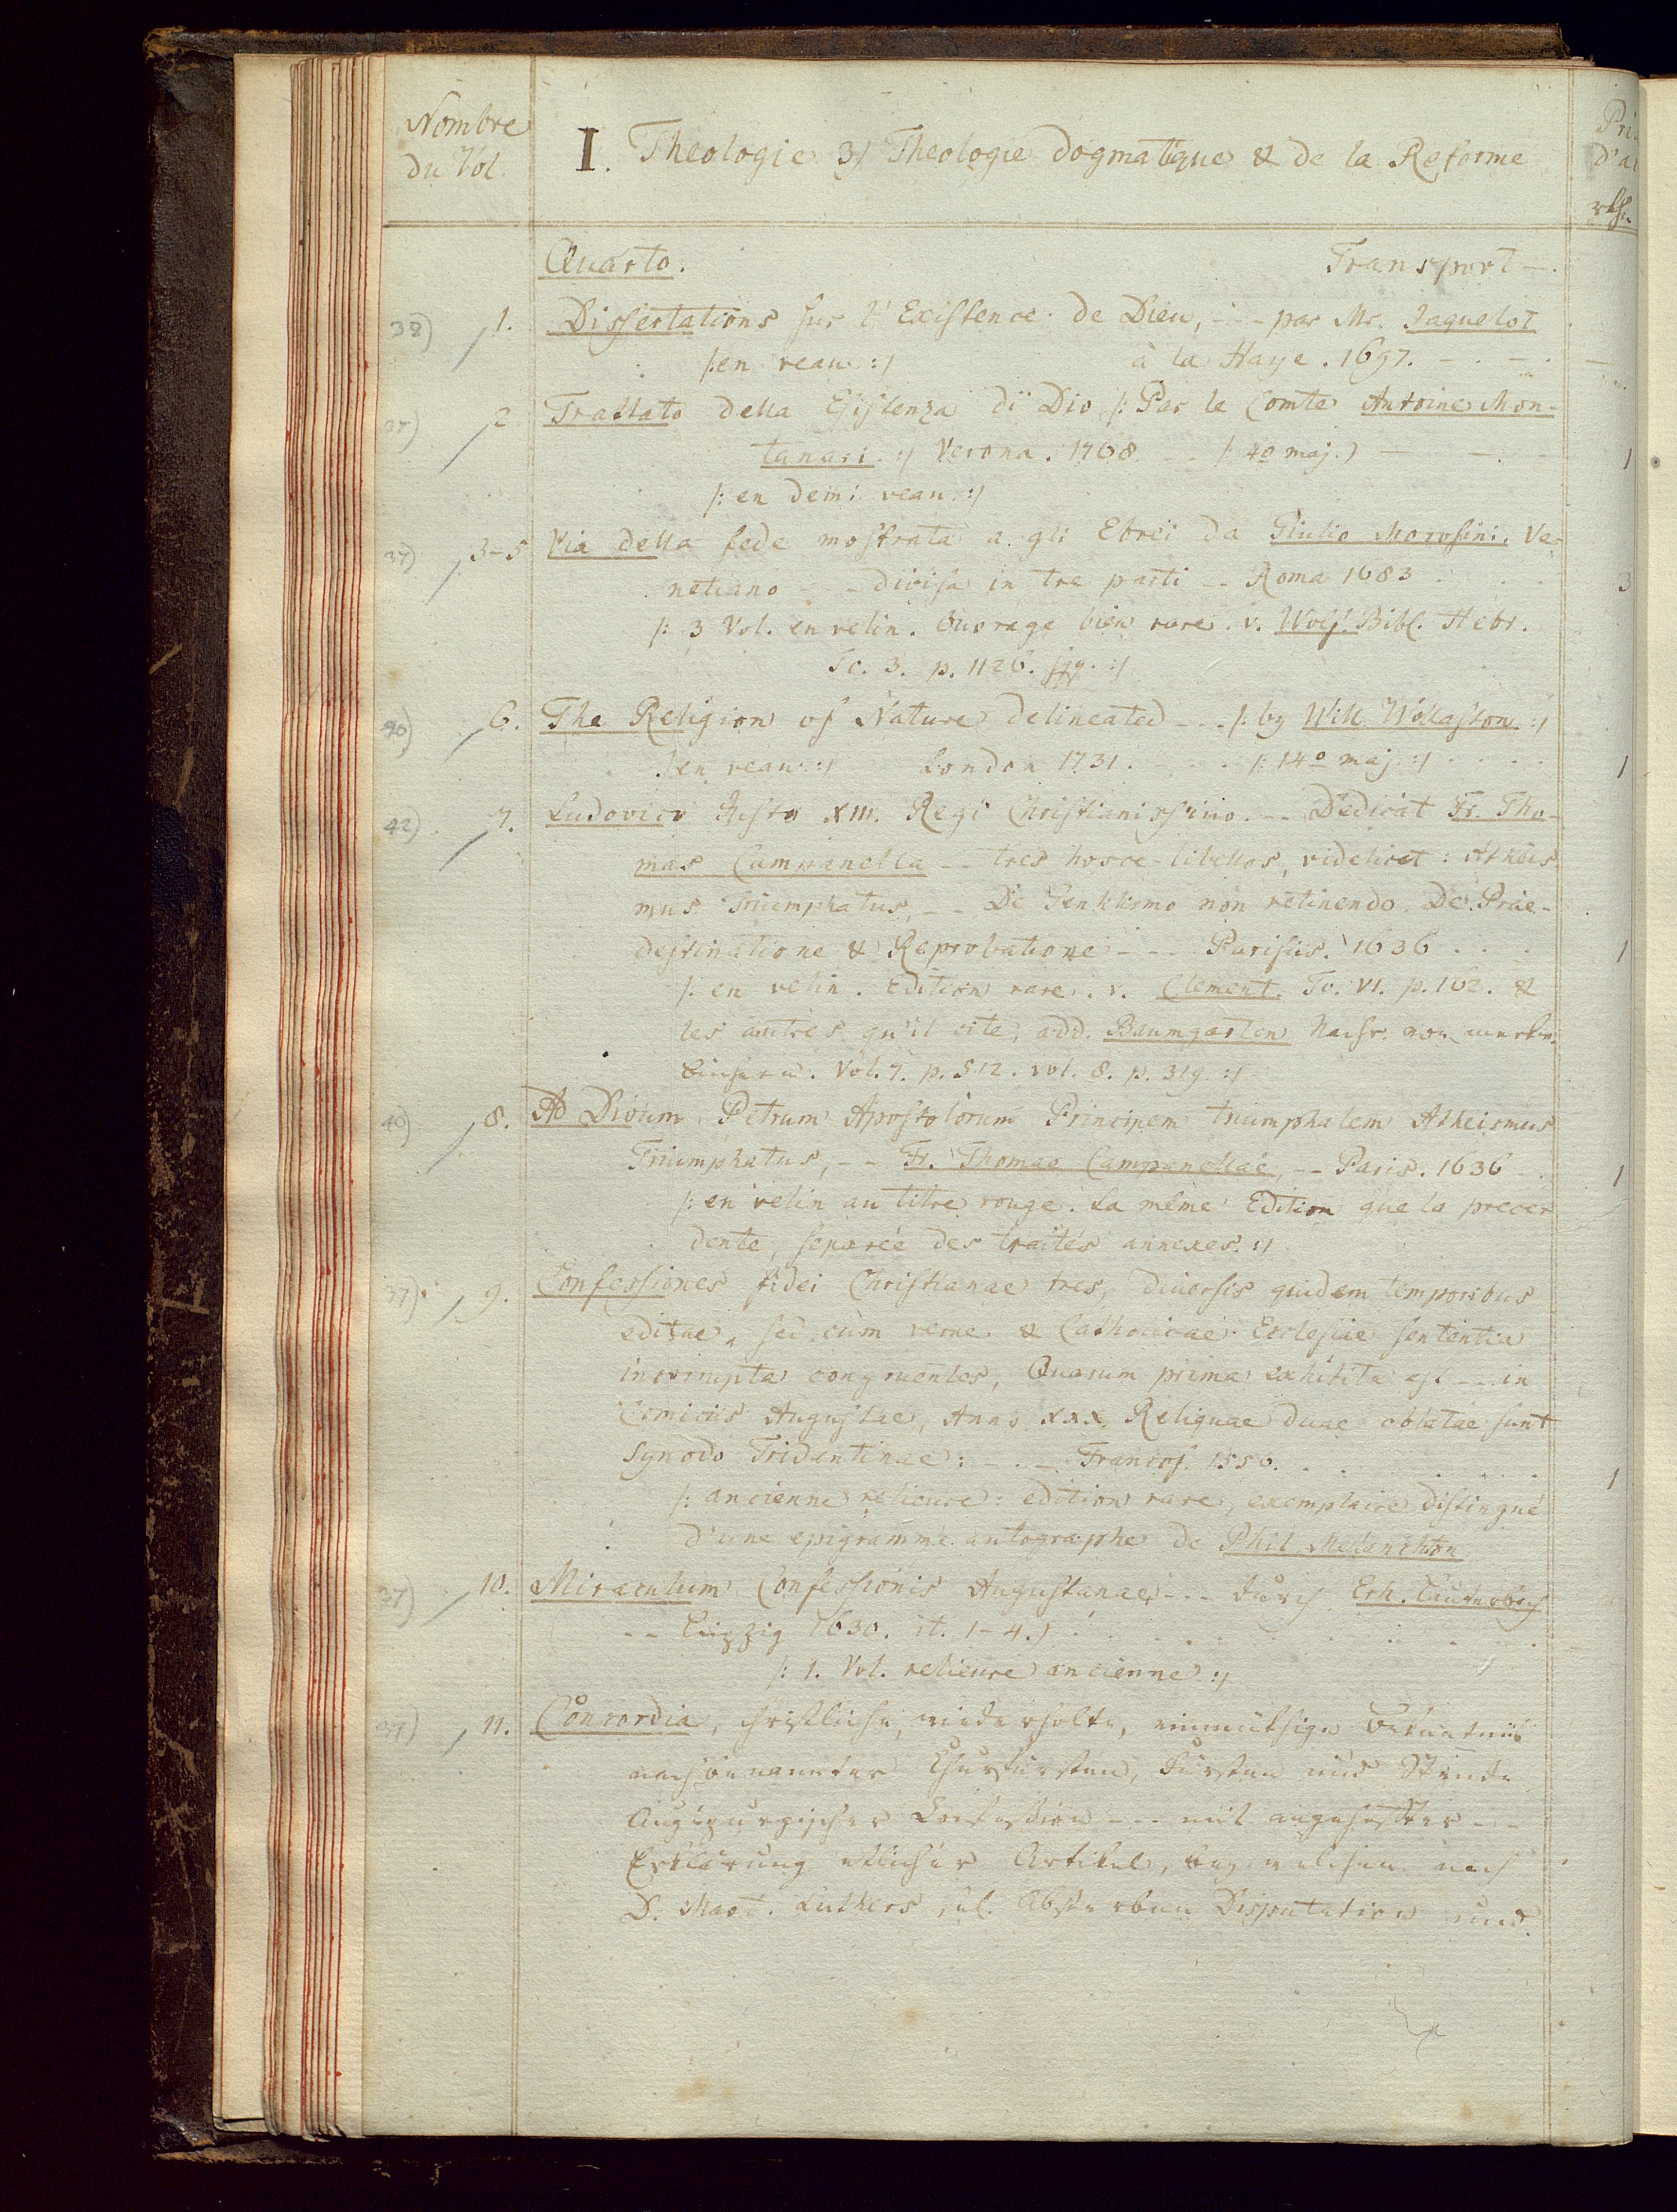 Nombre
du Vol.
I. Theologie 3) Theologie dogmatique & de la Reforme
Pri
d'a
Quarto. Transport -.
38) 1. Dissertations sur l'Existence de Dieu, - - par Mr. Jaquelot
/:en veau:/ à la Haye. 1697. - . - .
37) 2. Trattato della Esistenza di Dio /: Par le Comte Antoine Mon-
tanari. :/ Verona. 1768. - - /: 4o maj.) - - . - 1
/: en demi veau. :/
37) 3-5 Via della fede mostrata a gli Ebrei da Giulio Morosini. Ve-
netiano - - - divisa in tre parti - - Roma 1683 . . . 3
/: 3 Vol. en velin. Ouvrage bien rare. v. Wolf. Bibl. Hebr.
To. 3. p. 1126. sqq. :/
40) 6. The Religion of Nature delineated - - - /: by Will. Wollaston :/
/:en veau:/ London 1731. - . . . /: 14o maj :/ . . . . 1
42) 7. Ludovico Justo XIII. Regi Christianissimo. - - Dedicat Fr. Tho-
mas Campanella - - tres hosce libellos, videlicet: Atheis
mus Triumphatus, - - De Gentilismo non retinendo. De Prae-
destinatione & Reprobatione - - - Parisiis. 1636 . . . 1
/: en velin. Edition rare. v. Clement. To. VI. p. 162. &
les autres qu'il cite, add. Baumgarten Nachr. von merkw.
Büchern. Vol. 7. p. 512. vol. 8. p. 319. :/
40) 8. Ad Divum Petrum Apostolorum Principem triumphalem Atheismus
Triumphatus, - - Fr. Thomae Campanellae, - - Paris. 1636 - . 1
/: en velin au titre rouge. La même Edition que la prece
dente, separée des traités annexes. :/
37) 9. Confessiones fidei Christianae tres, diversis quidem temporibus
editae, sed cum verae & Catholicae Ecclesiae sententia
incorrupta congruentes, Quarum prima exhibita est - - in
Comiciis Augustae, Anno XXX, Reliquae duae oblatae sunt
Synodo Tridentinae: - . - Francof. 1556. . . . . . . 1
/: ancienne relieure: edition rare, exemplaire distingué
d'une epigramme autographe de Phil. Melanchton
37) 10. Miraculum Confessionis Augustanae - - - durch Erh. Lauterbach
- - Leipzig 1630. it. 1-4.) . . . . . . .
/: 1. Vol. relieure ancienne :/
37) 11. Concordia, christliche, wiederholte, einmüthige Bekantnüs
nachbenannter Churfürsten, Fürsten und Stende
Augspurgischer Confession - - - mit angeheffter - -
Erklärung etlicher Artikel, bey welchen nach
D. Mart. Luthers sel. Absterben Disputation und